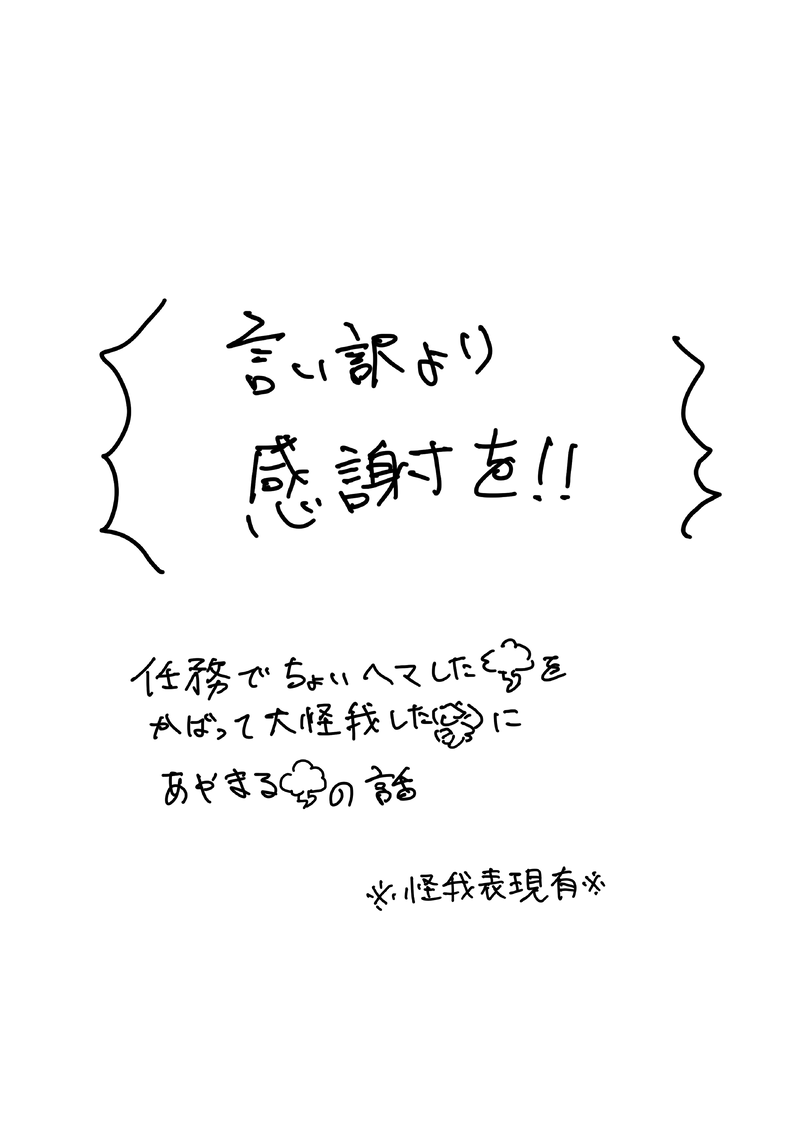 言い訳より
感謝を!!
任務でちょいヘマした🌩を
かばって大怪我したに
あやまる🌩の話
※怪我表現有※